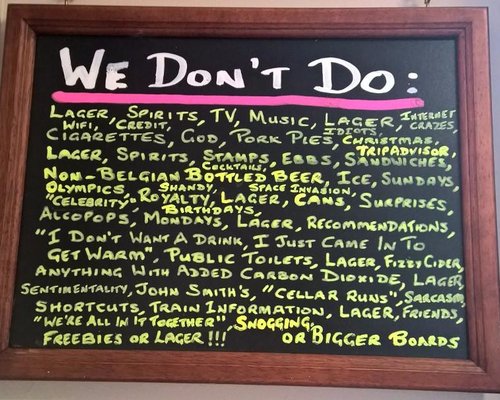 WE DON'T DO:
LAGER, SPIRITS, TV, MUSIC, LAGER, INTERNET CRAZES,
WIFI, CREDIT, IDIOTS,
CIGARETTES, GOD, PORK PIES, CHRISTMAS, TRIPADVISOR,
LAGER, SPIRITS, STAMPS, EBBS, SANDWICHES,
COCKTAILS,
NON-BELGIAN BOTTLED BEER, ICE, SUNDAYS,
OLYMPICS, SHANDY, SPACE INVASION,
"CELEBRITY", ROYALTY, LAGER, CANS, SURPRISES,
BIRTHDAYS,
ALCOPOPS, MONDAYS, LAGER, RECOMMENDATIONS,
"I DON'T WANT A DRINK, I JUST CAME IN TO
GET WARM", PUBLIC TOILETS, LAGER, FIZZY CIDER,
ANYTHING WITH ADDED CARBON DIOXIDE, LAGER,
SENTIMENTALITY, JOHN SMITH'S, "CELLAR RUNS", SARCASM,
SHORTCUTS, TRAIN INFORMATION, LAGER, FRIENDS,
"WE'RE ALL IN IT TOGETHER", SNOGGING,
FREEBIES OR LAGER!!! OR BIGGER BOARDS